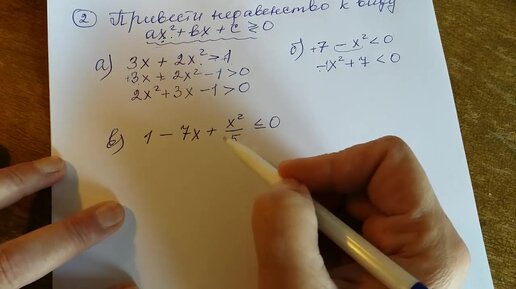 2 Привести неравенство к виду
ax²+bx+c≥0
а) 3x + 2x² > 1
+3x + 2x² - 1 > 0
2x² + 3x - 1 > 0
б) +7 - x² < 0
-1x² + 7 < 0
в) 1 - 7x + x²/5 ≤ 0